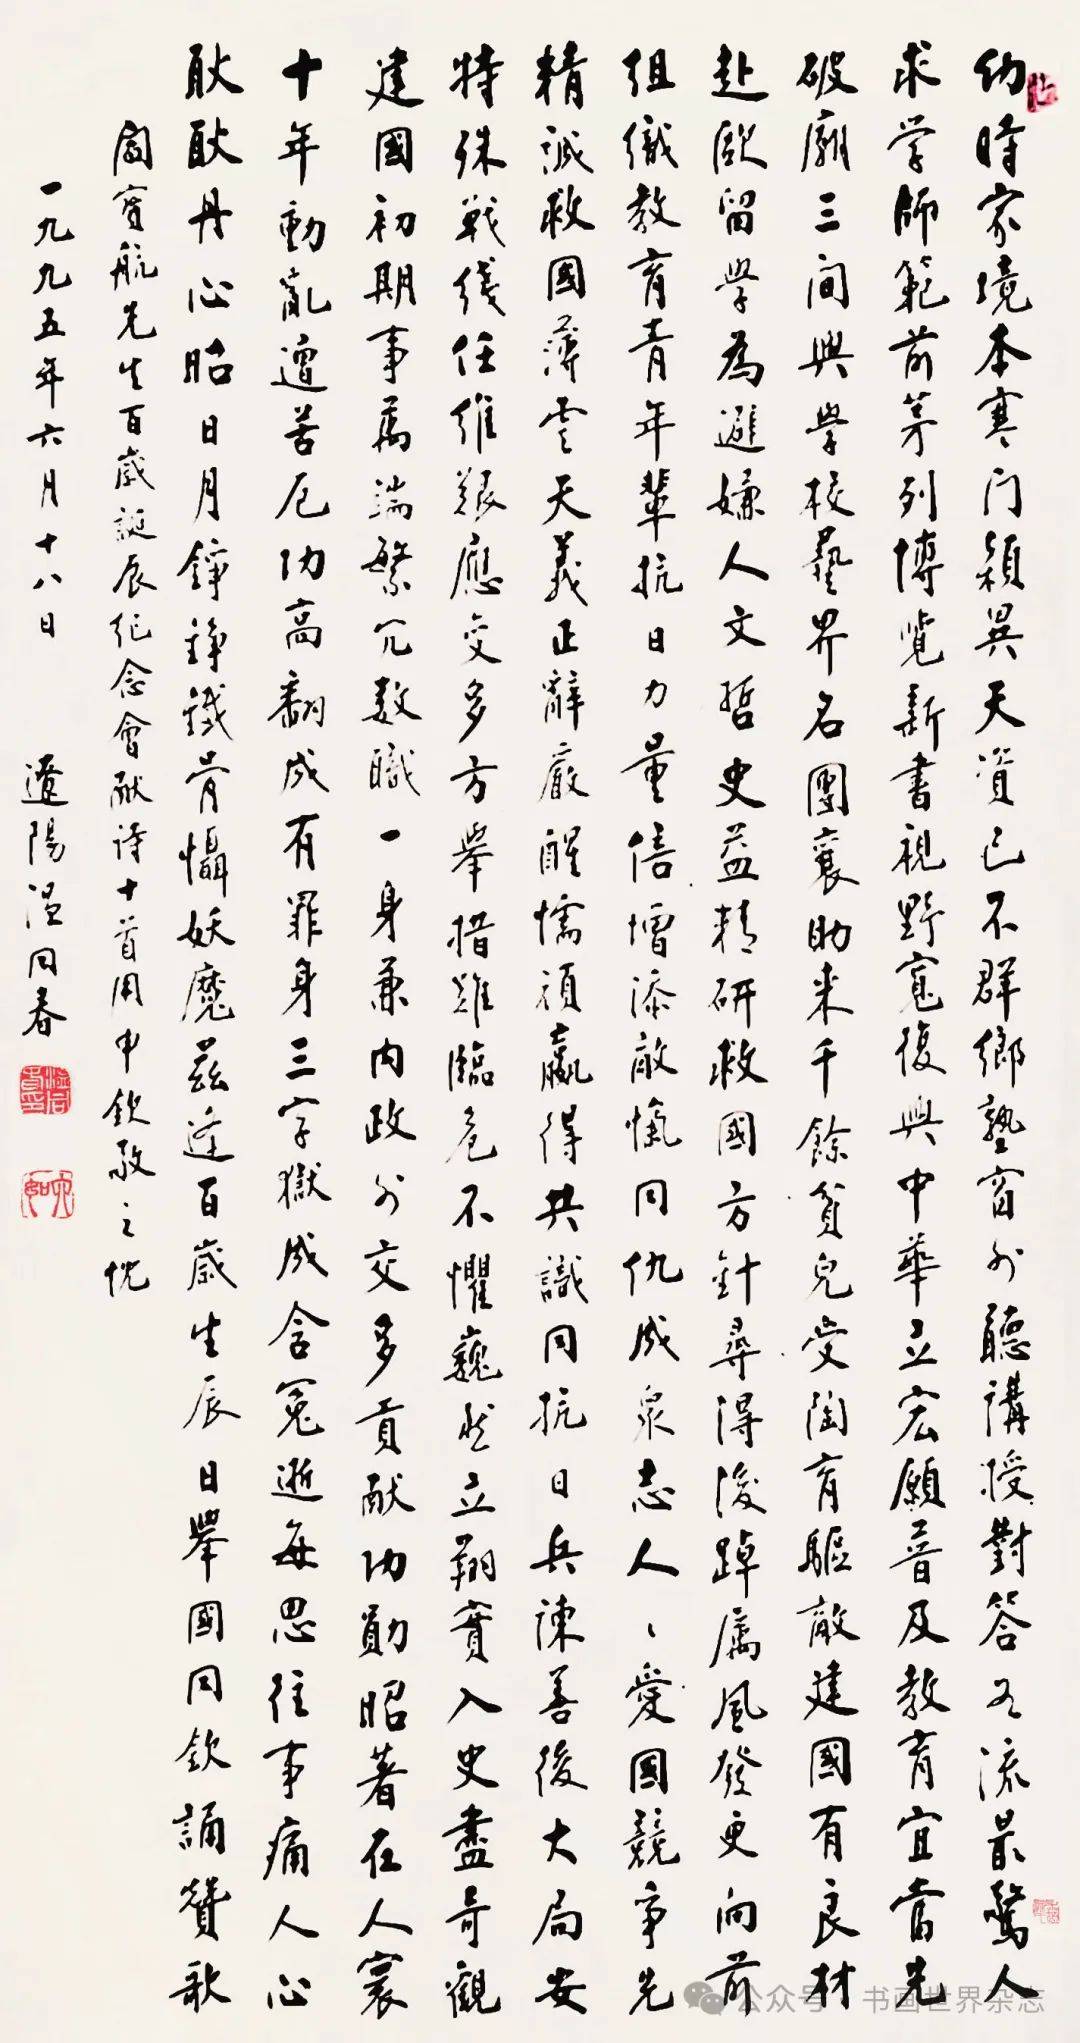 幼時家境本寒门穎異天資已不群鄉塾窗外聽講授對答如流最驚人
求学師範前茅列博览新書視野寬復興中華立宏願普及教育宜當先
破廟三间興學校藝界名團襄助来千餘貧兒受陶育驅敵建國有良材
赴欧留學為避嫌人文哲史益精研救國方針尋得後踔厲風發更向前
组織教育青年輩抗日力量倍增添敵愾同仇成眾志人人愛國競争先
精诚救國薄雲天義正辭嚴醒懦頑赢得共識同抗日兵諫善後大局安
特殊戦线任维艱應变多方舉措難臨危不懼巍然立翔實入史盡奇觀
建國初期事萬端繁冗数職一身兼内政外交多貢献功勛昭著在人寰
十年動亂遭苦厄功高翻成有罪身三字獄成含冤逝每思往事痛人心
耿耿丹心昭日月錚錚鐵骨懾妖魔兹逢百歲生辰日舉國同欽誦贊歌
阎寶航先生百歲誕辰纪念會献诗十首用申欽敬之忱
一九九五年六月十八日 遼陽温同春
公众号·书画世界杂志